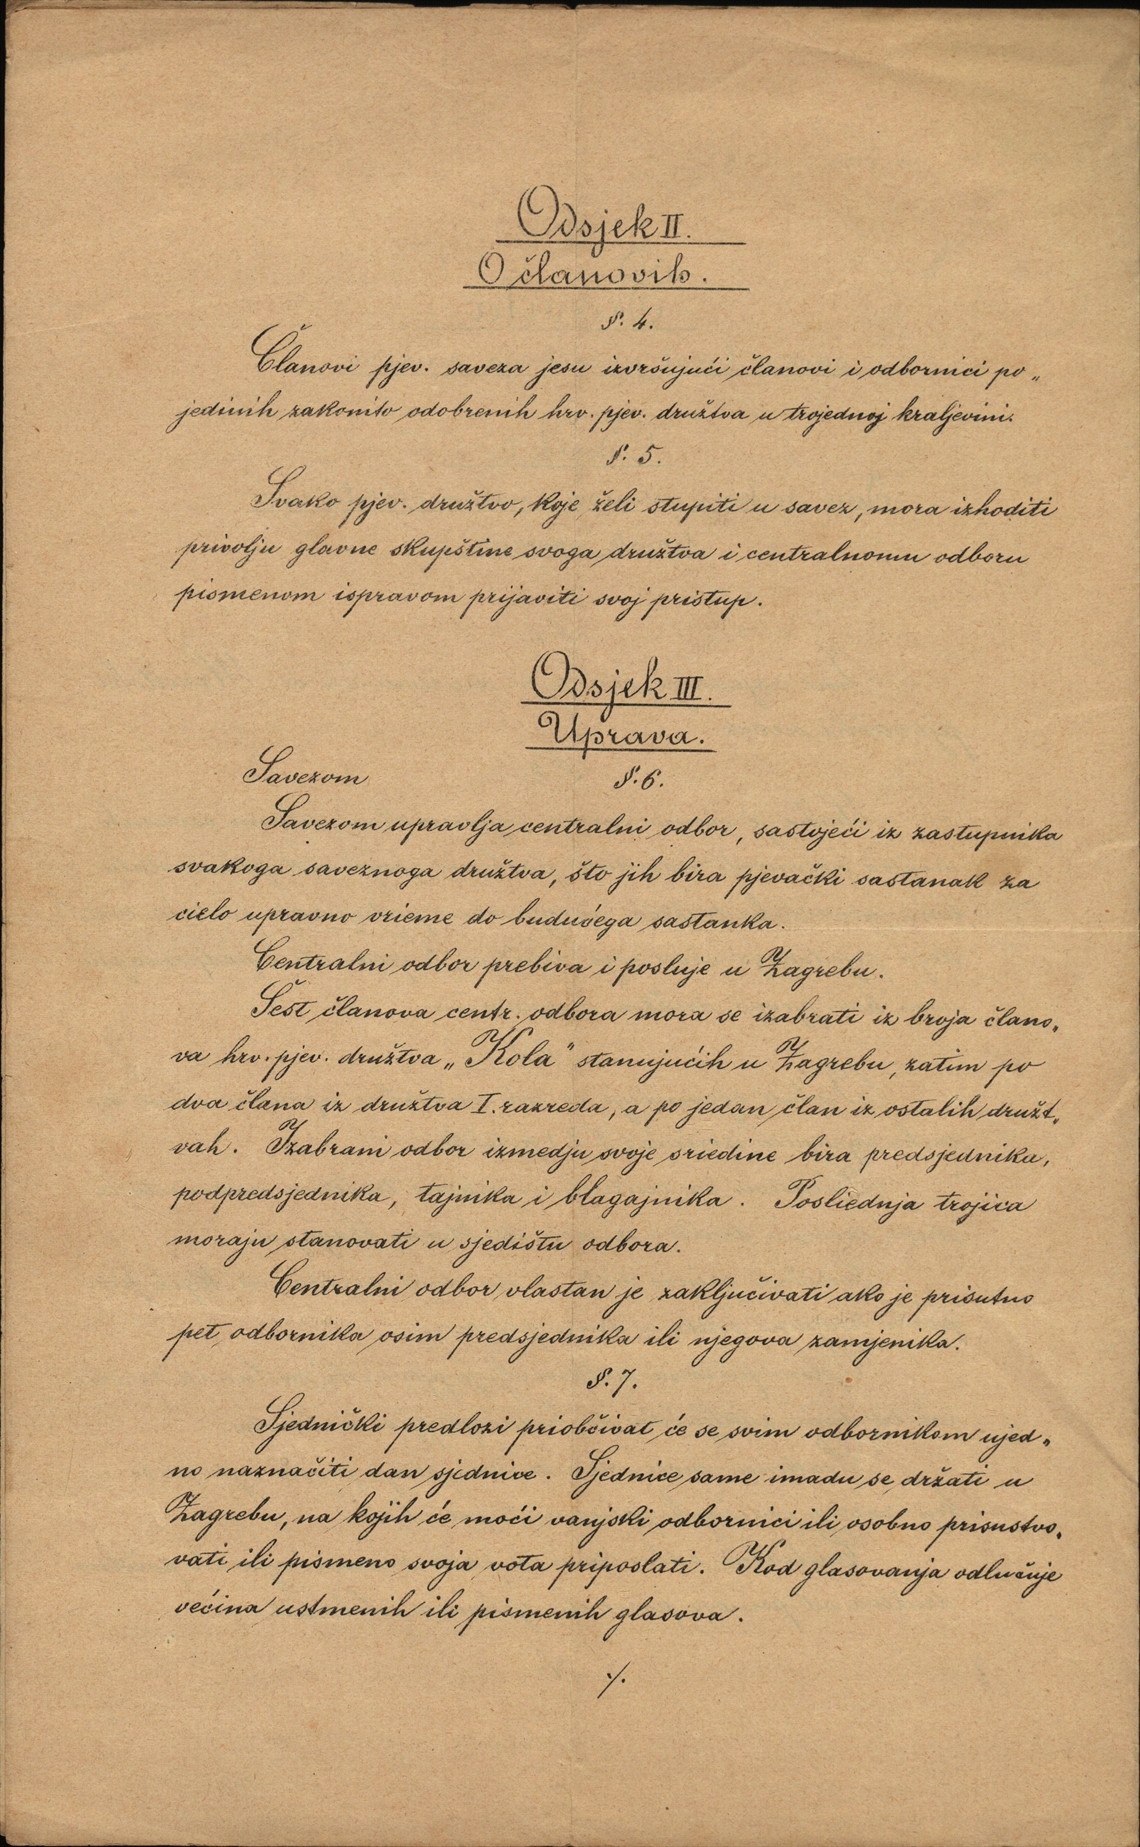 Odsjek II.
O članovih.
§. 4.
Članovi pjev. saveza jesu izvršujući članovi i odbornici po„
jedinih zakonito odobrenih hrv. pjev. družtva u trojednoj kraljevini.
§. 5.
Svako pjev. družtvo, koje želi stupiti u savez, mora izhoditi
privolju glavne skupštine svoga družtva i centralnomu odboru
pismenom ispravom prijaviti svoj pristup.
Odsjek III.
Uprava.
Savezom §. 6.
Savezom upravlja centralni odbor, sastojeći iz zastupnika
svakoga saveznoga družtva, što jih bira pjevački sastanak za
cielo upravno vrieme do budućega sastanka.
Centralni odbor prebiva i posluje u Zagrebu.
Šest članova centr. odbora mora se izabrati iz broja člano„
va hrv. pjev. družtva „Kola" stanujućih u Zagrebu, zatim po
dva člana iz družtva I. razreda, a po jedan član iz ostalih družt„
vah. Izabrani odbor izmedju svoje sriedine bira predsjednika,
podpredsjednika, tajnika i blagajnika. Posliednja trojica
moraju stanovati u sjedištu odbora.
Centralni odbor vlastan je zaključivati ako je prisutno
pet odbornika osim predsjednika ili njegova zamjenika.
§. 7.
Sjednički predlozi priobćivat će se svim odbornikom ujed„
no naznačiti dan sjednice. Sjednice same imadu se držati u
Zagrebu, na kojih će moći vanjski odbornici ili osobno prisustvo„
vati ili pismeno svoja vota priposlati. Kod glasovanja odlučuje
većina ustmenih ili pismenih glasova.
./.